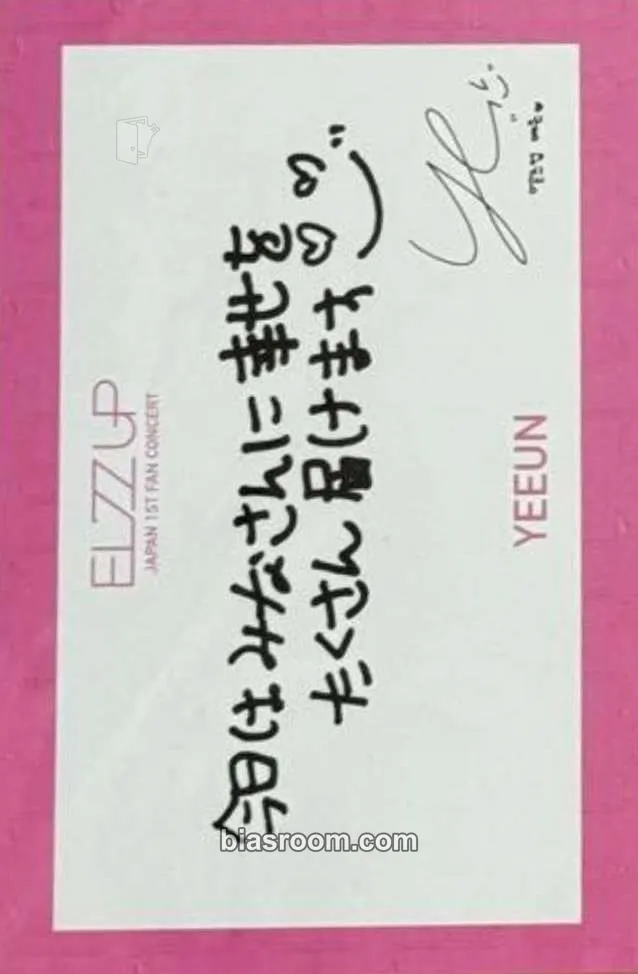 EL7Z UP
JAPAN 1ST FAN CONCERT
今日はみなさんに幸せを♡♡
たくさん届けます
YEEUN
예은
biasroom.com